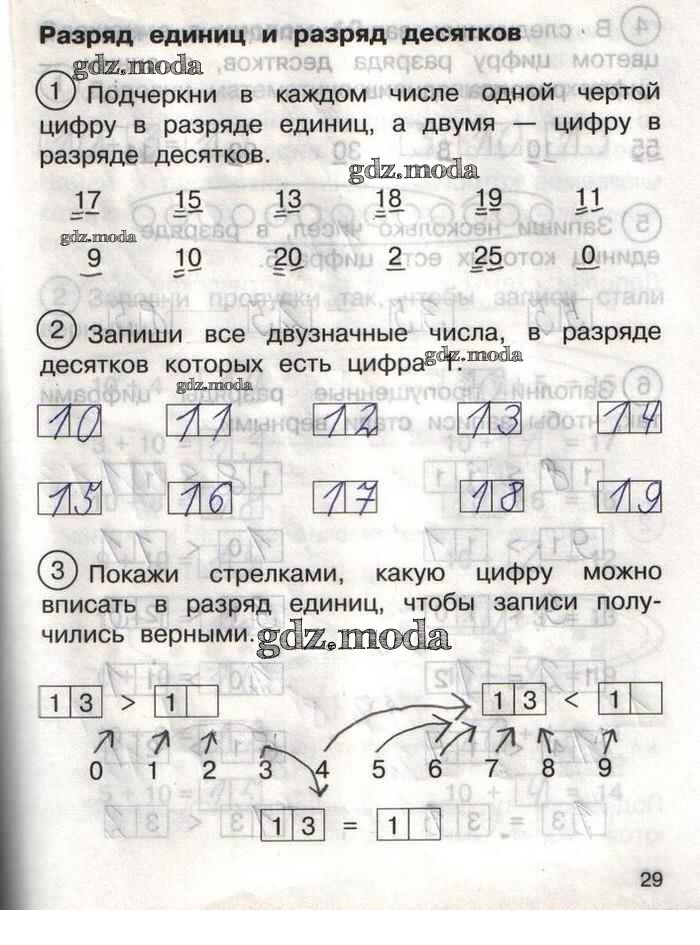 Разряд единиц и разряд десятков
gdz.moda
1 Подчеркни в каждом числе одной чертой
цифру в разряде единиц, а двумя — цифру в
разряде десятков.
gdz.moda
17 15 13 18 19 11
gdz.moda
9 10 20 2 25 0
2 Запиши все двузначные числа, в разряде
десятков которых есть цифра 1.
gdz.moda
gdz.moda
10 11 12 13 14
15 16 17 18 19
3 Покажи стрелками, какую цифру можно
вписать в разряд единиц, чтобы записи полу-
чились верными.
gdz.moda
13 > 1 13 < 1
0 1 2 3 4 5 6 7 8 9
13 = 1
29